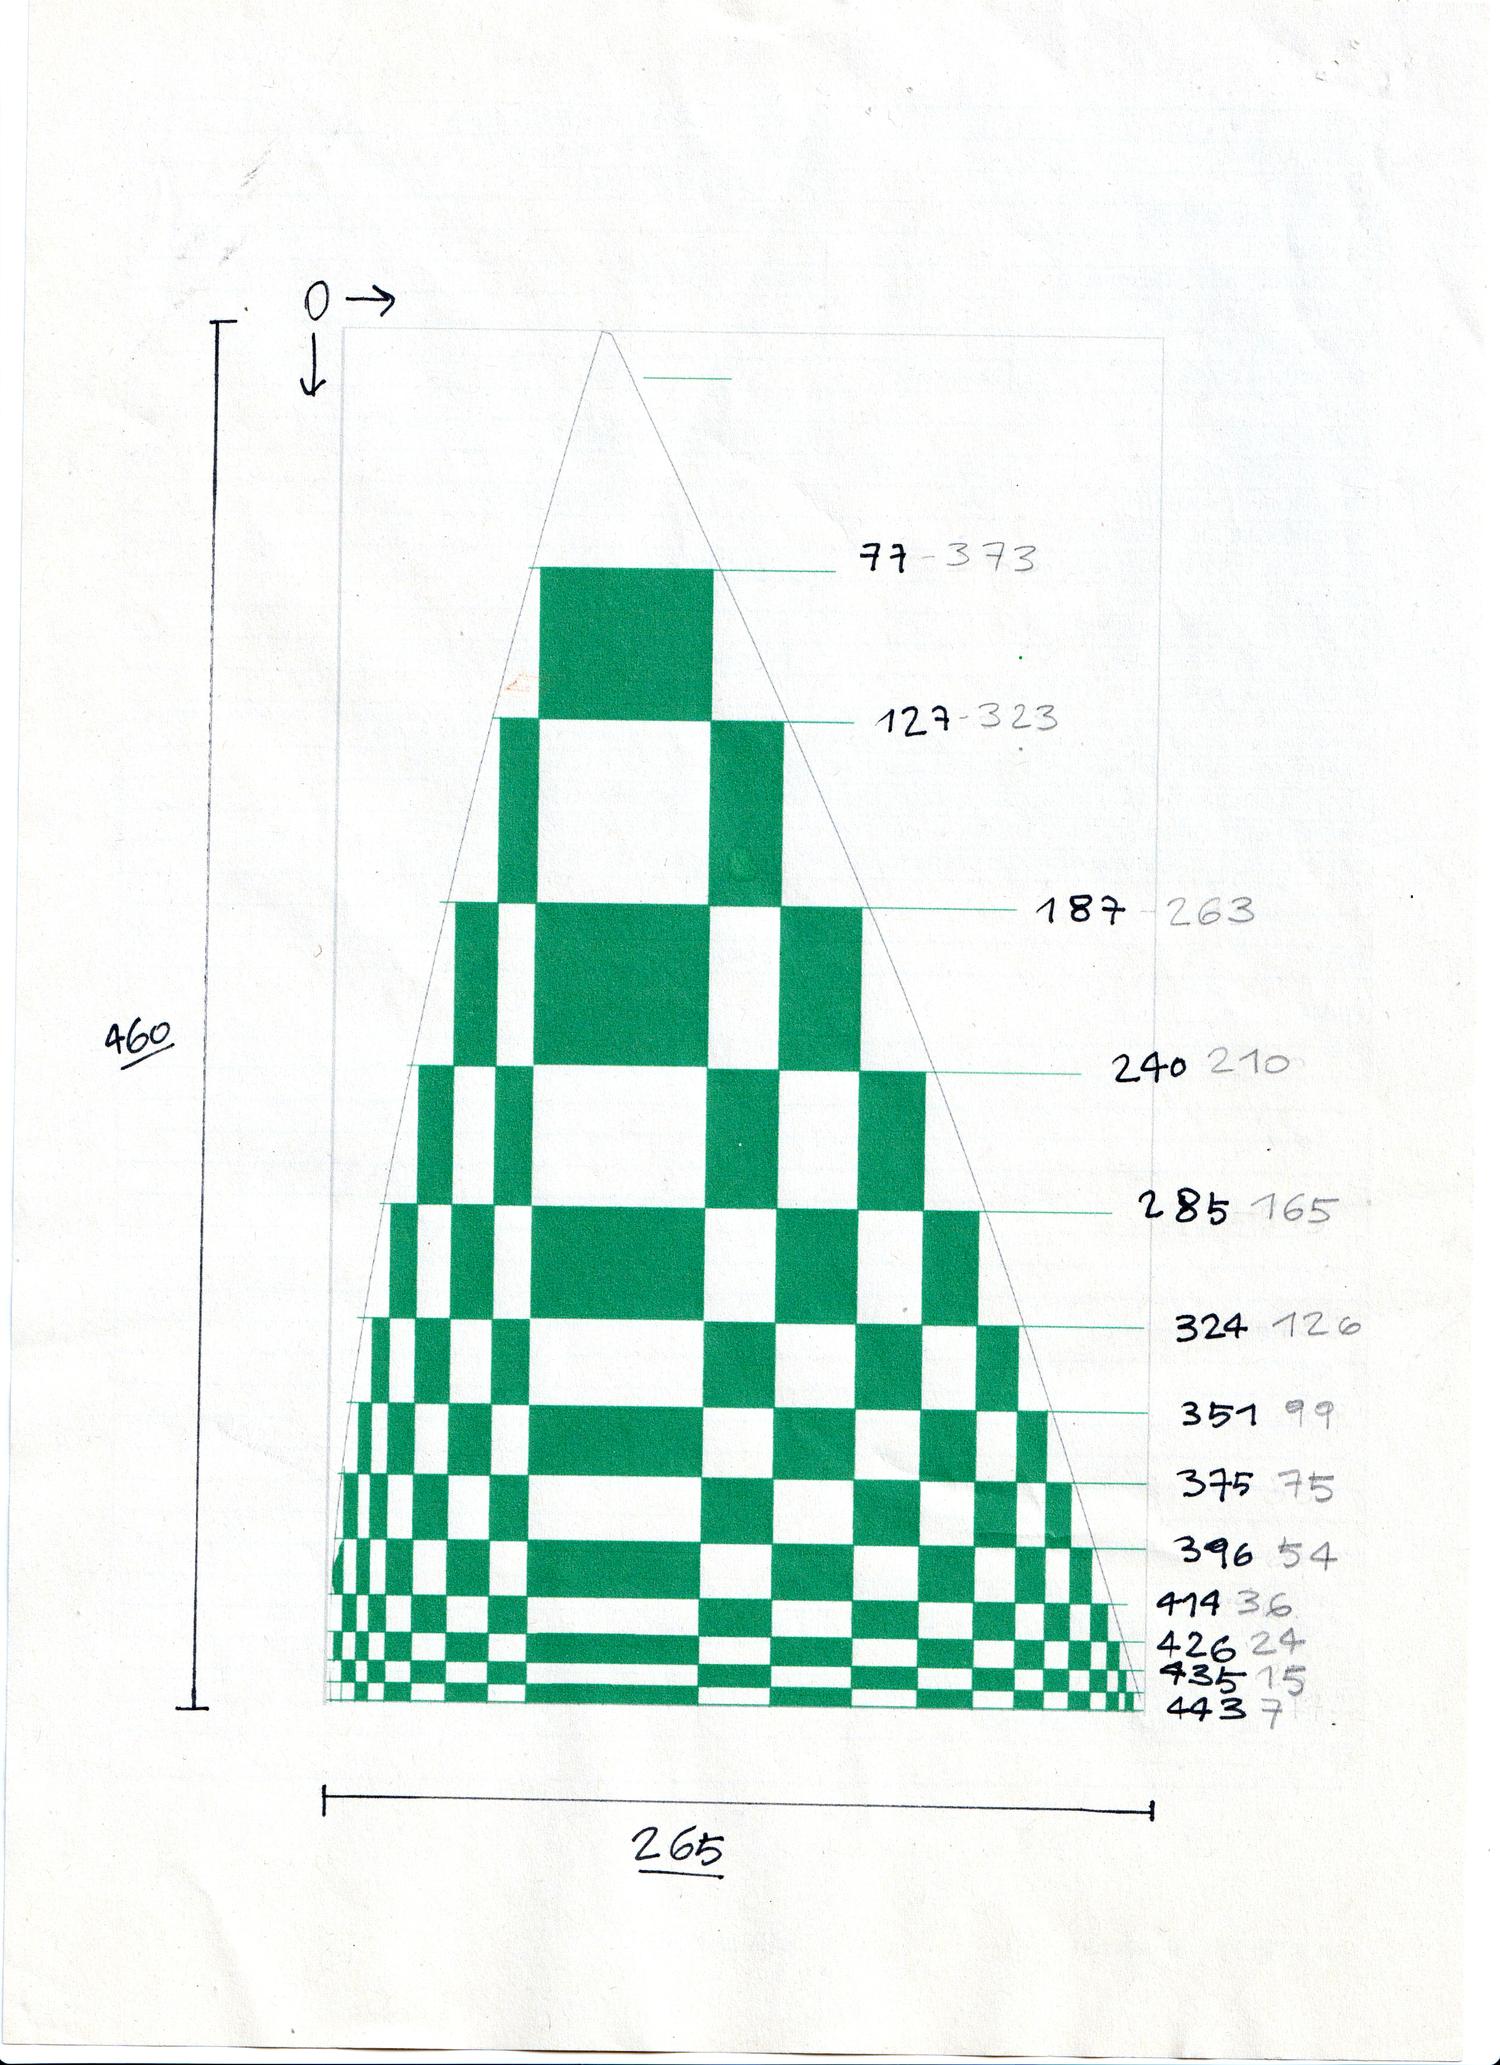 0 →
↓
77 - 373
127 - 323
187 - 263
460
240 210
285 165
324 126
351 99
375 75
396 54
414 36
426 24
435 15
443 7
265